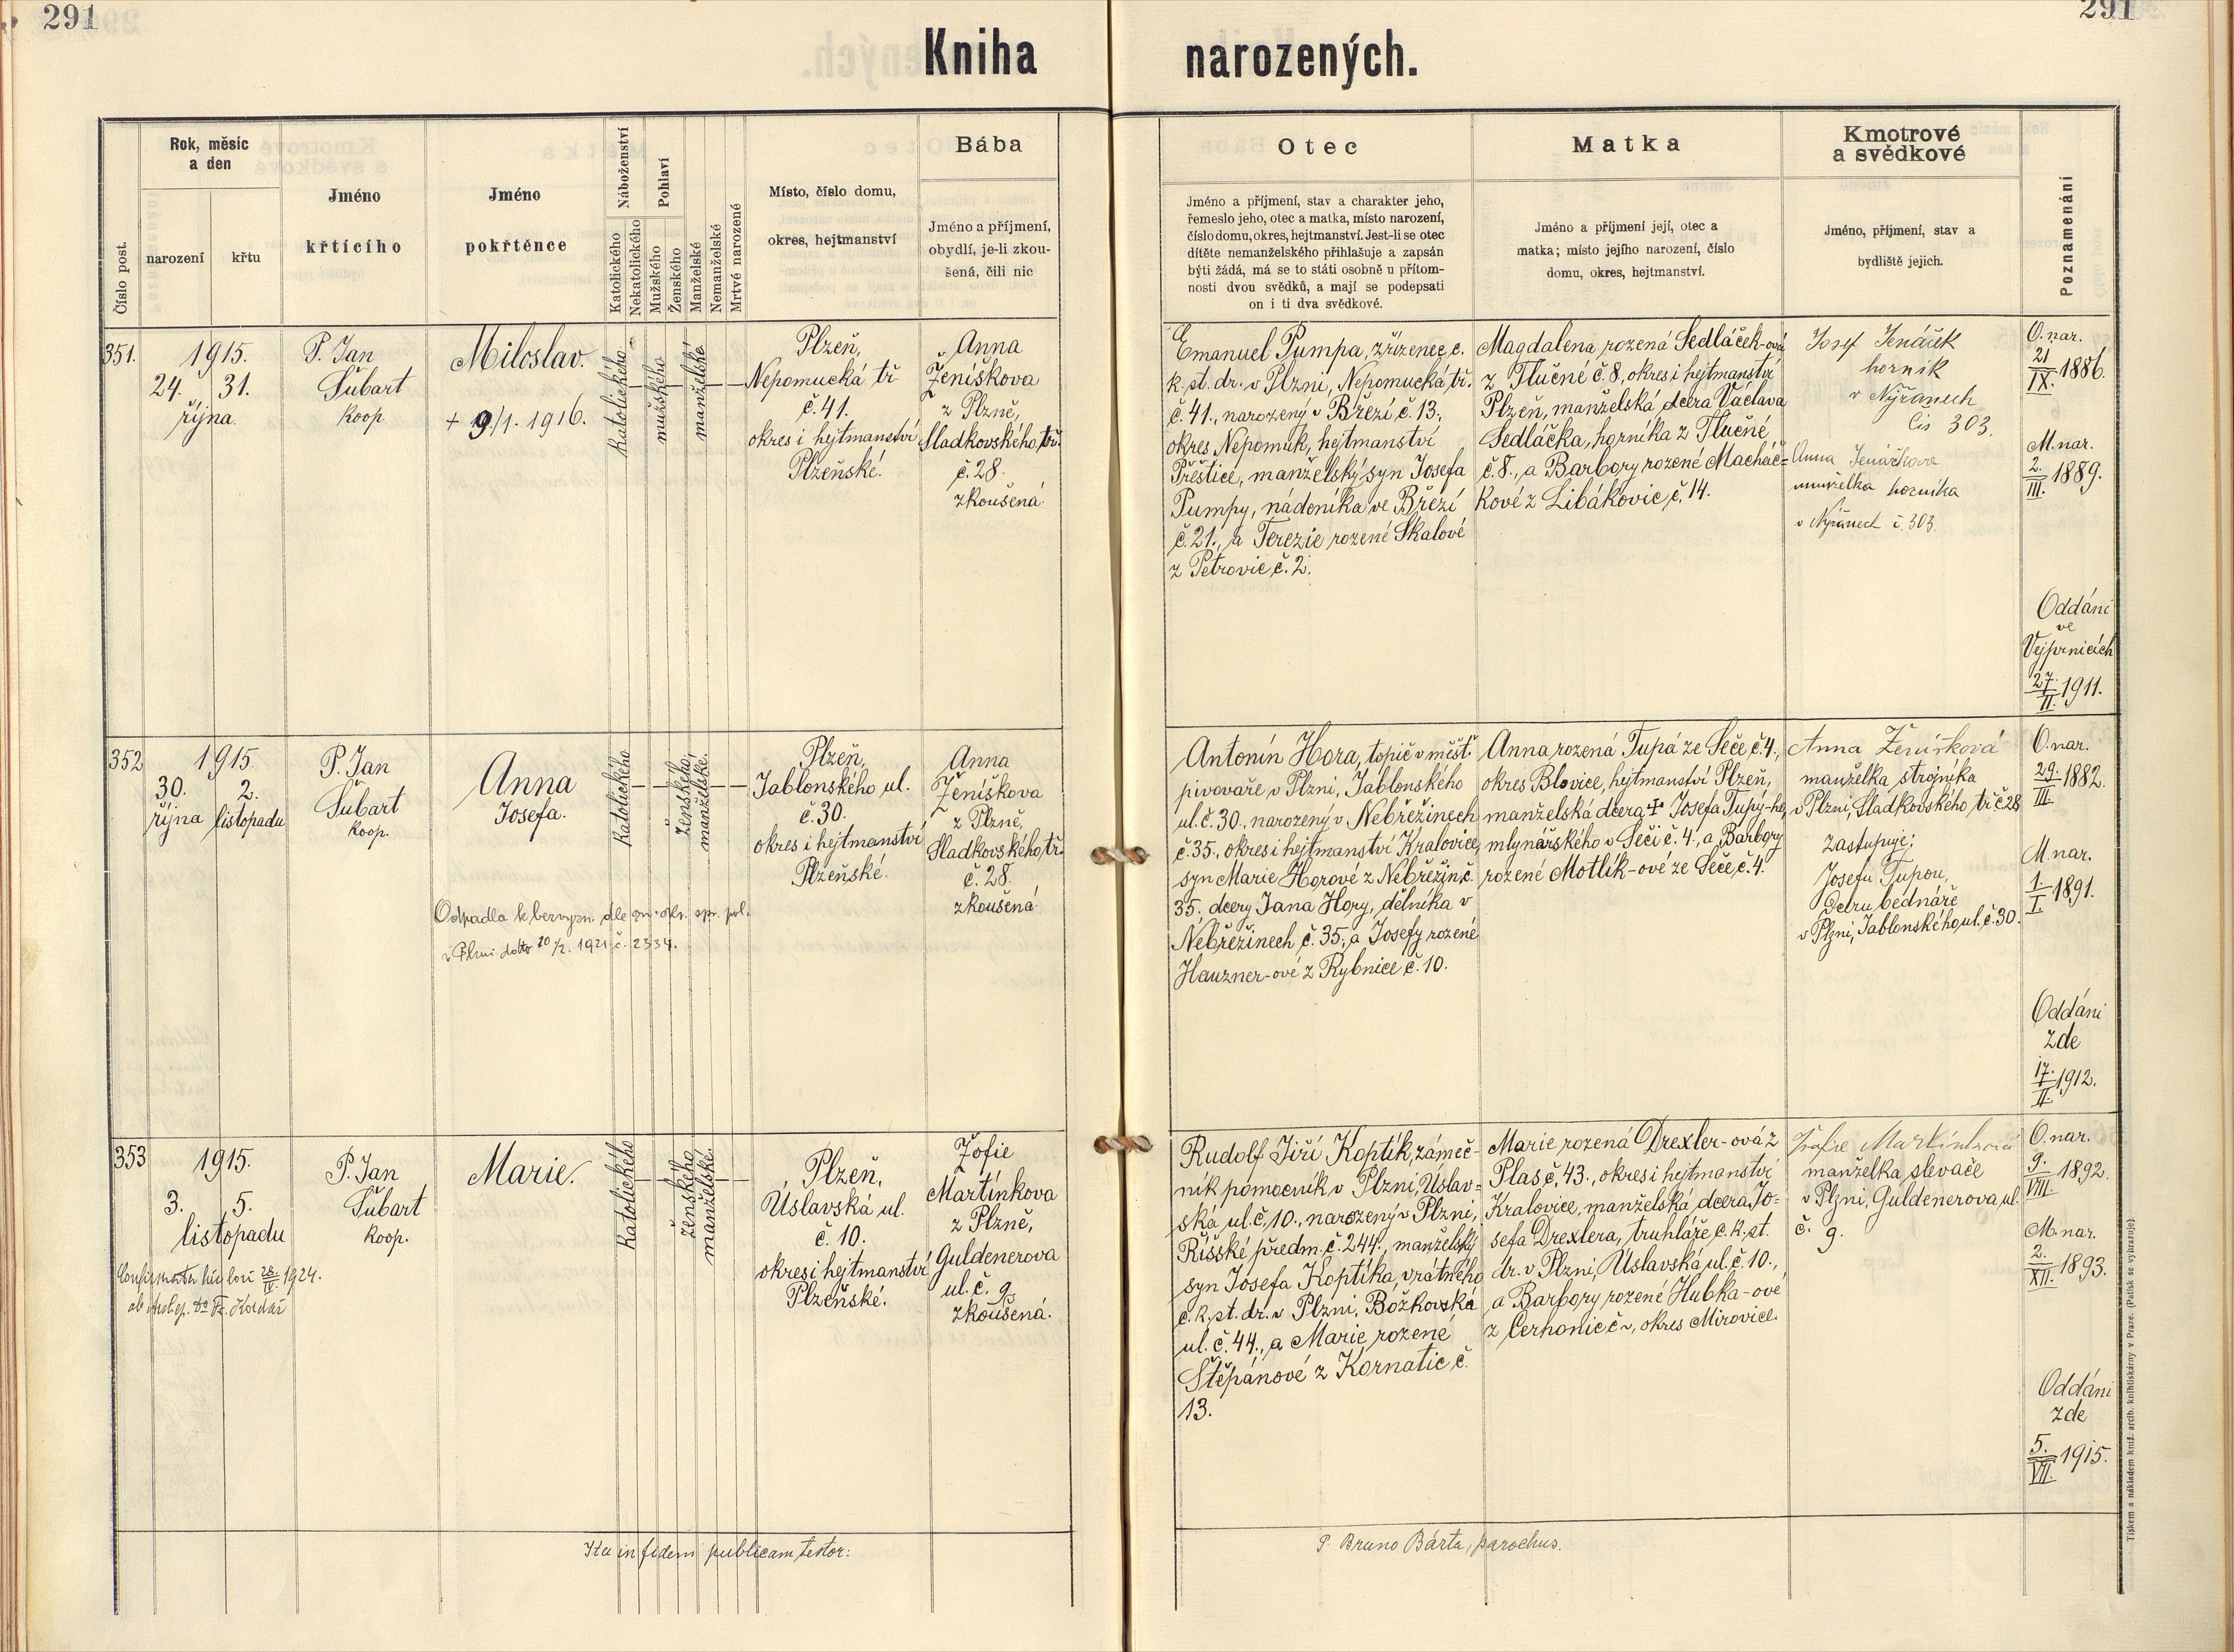 291
291
Kniha narozených.
Číslo post.
Rok, měsíc
a den
narození
křtu
Jméno
křtícího
Jméno
pokřtěnce
Náboženství
Katolického
Nekatolického
Pohlaví
Mužského
Ženského
Manželské
Nemanželské
Mrtvě narozené
Místo, číslo domu,
okres, hejtmanství
Bába
Jméno a příjmení,
obydlí, je-li zkou-
šená, čili nic
Otec
Jméno a příjmení, stav a charakter jeho,
řemeslo jeho, otec a matka, místo narození,
číslo domu, okres, hejtmanství. Jest-li se otec
dítěte nemanželského přihlašuje a zapsán
býti žádá, má se to státi osobně u přítom-
nosti dvou svědků, a mají se podepsati
on i ti dva svědkové.
Matka
Jméno a příjmení její, otec a
matka; místo jejího narození, číslo
domu, okres, hejtmanství.
Kmotrové
a svědkové
Jméno, příjmení, stav a
bydliště jejich.
Poznamenání
351.
1915.
24. 31.
října.
P. Jan
Šubart
koop.
Miloslav.
+ 9/1. 1916.
katolického
mužského
manželské
Plzeň,
Nepomucká tř.
č. 41.
okres i hejtmanství
Plzeňské.
Anna
Ženíškova
z Plzně,
Sladkovského tř.
č. 28.
zkoušená.
Emanuel Pumpa, zřízenec c.
k. st. dr. v Plzni, Nepomucká tř.
č. 41., narozený v Březí č. 13.,
okres Nepomuk, hejtmanství
Přeštice, manželský syn Josefa
Pumpy, nádeníka ve Březí
č. 21., a Terezie rozené Skalové
z Petrovic č. 2.
Magdalena rozená Sedláček-ová
z Tlučné č. 8., okres i hejtmanství
Plzeň, manželská dcera Václava
Sedláčka, horníka z Tlučné
č. 8., a Barbory rozené Macháč=
kové z Libákovic č. 14.
Josef Jenáček
horník
v Nýřanech
čís 303.
Anna Jenáčkova
manželka horníka
v Nýřanech č. 303.
O. nar.
21/IX. 1886.
M. nar.
2./III. 1889.
Oddáni
ve
Vejprnicích
27./II. 1911.
352
1915.
30. 2.
října listopadu
P. Jan
Šubart
koop.
Anna
Josefa.
Odpadla k bezvyzn. dle ozn. okr. spr. pol.
v Plzni dtto 20/2. 1921 č. 2334.
katolického
ženského
manželské.
Plzeň,
Jablonského ul.
č. 30.
okres i hejtmanství
Plzeňské.
Anna
Ženíškova
z Plzně,
Sladkovského tř.
č. 28.
zkoušená.
Antonín Hora, topič v měšť.
pivovaře v Plzni, Jablonského
ul. č. 30., narozený v Nebřežinech
č. 35., okres i hejtmanství Kralovice,
syn Marie Horové z Nebřežin č.
35., dcery Jana Hory, dělníka v
Nebřežinech č. 35., a Josefy rozené
Hauzner-ové z Rybnice č. 10.
Anna rozená Tupá ze Seče, č. 4.,
okres Blovice, hejtmanství Plzeň,
manželská dcera + Josefa Tupý-ho,
mlynářského v Seči č. 4., a Barbory
rozené Motlík-ové ze Seče, č. 4.
Anna Ženíšková
manželka strojníka
v Plzni, Sladkovského tř. č 28
zastupuje:
Josefu Tupou,
dceru bednáře
v Plzni, Jablonského, ul. č. 30.
O. nar.
29./III. 1882.
M. nar.
1./I. 1891.
Oddáni
zde
17./II. 1912.
353
1915.
3. 5.
listopadu
28./IV. 1924.
P. Jan
Šubart
koop.
Marie.
katolického
ženského
manželské.
Plzeň,
Úslavská ul.
č. 10.
okres i hejtmanství
Plzeňské.
Žofie
Martínkova
z Plzně,
Guldenerova
ul. č. 9.
zkoušená.
Rudolf Jiří Koptík, zámeč-
ník pomocník v Plzni, Úslav=
ská ul. č. 10., narozený v Plzni,
Říšské předm. č. 244., manželský
syn Josefa Koptíka, vrátného
c. k. st. dr. v Plzni, Božkovská
ul. č. 44., a Marie rozené
Štěpánové z Kornatic č.
13.
Marie rozená Drexler-ová z
Plas č. 43., okres i hejtmanství
Kralovice, manželská dcera Jo-
sefa Drexlera, truhláře c. k. st.
dr. v Plzni, Úslavská ul. č. 10.,
a Barbory rozené Hubka-ové
z Cerhonic č ~, okres Mirovice.
Žofie Martínková
manželka slevače
v Plzni, Guldenerova ul.
č. 9.
O. nar.
9./VIII. 1892.
M. nar.
2./XII. 1893.
Oddáni
zde
5./VII. 1915.
Ita in fidem publicam testor:
P. Bruno Bárta, parochus.
Tiskem a nákladem kníž. arcib. knihtiskárny v Praze. (Patisk se vyhrazuje)